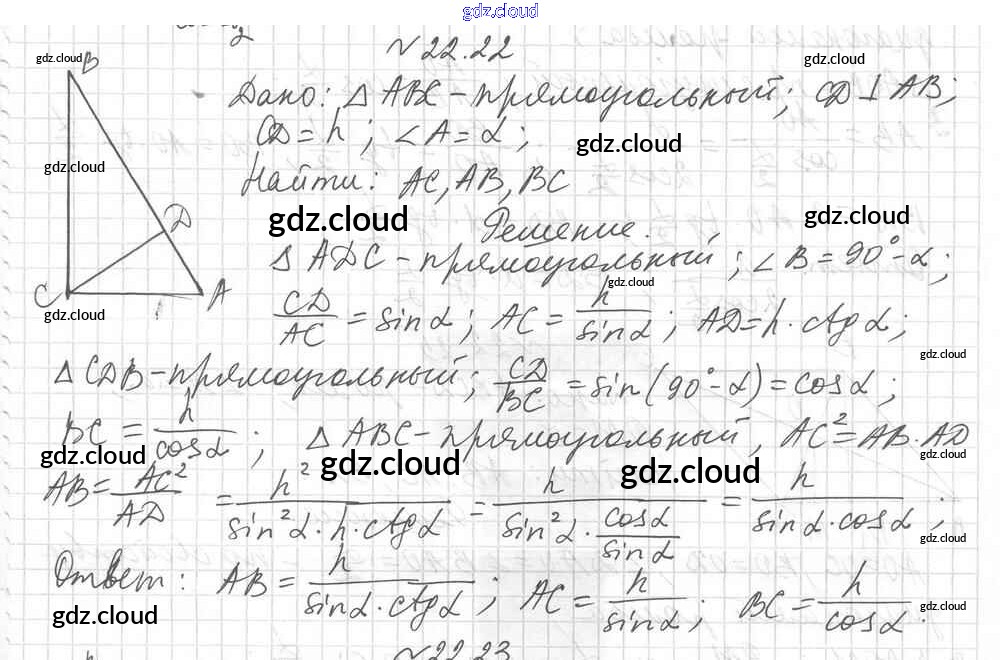 gdz.cloud
№ 22.22
gdz.cloud B gdz.cloud
Дано: △ ABC - прямоугольный; CD ⊥ AB;
CD = h; ∠A = α; gdz.cloud
gdz.cloud Найти: AC, AB, BC
D gdz.cloud Решение. gdz.cloud
△ ADC - прямоугольный; ∠B = 90° - α;
C A gdz.cloud
gdz.cloud CD/AC = sin α; AC = h/sin α; AD = h · ctg α;
gdz.cloud
△ CDB - прямоугольный; CD/BC = sin(90° - α) = cos α;
BC = h/cos α; △ ABC - прямоугольный, AC² = AB · AD
gdz.cloud gdz.cloud gdz.cloud gdz.cloud
AB = AC²/AD = h²/(sin² α · h · ctg α) = h/(sin² α · cos α/sin α) = h/(sin α · cos α);
gdz.cloud
Ответ: AB = h/(sin α · ctg α); AC = h/sin α; BC = h/cos α.
gdz.cloud gdz.cloud gdz.cloud
№ 22.23